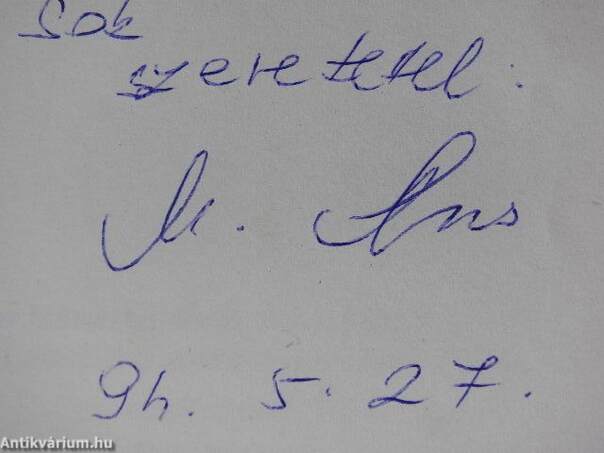 Sok
szeretetel:
M.
94. 5. 27.
Antikvárium.hu